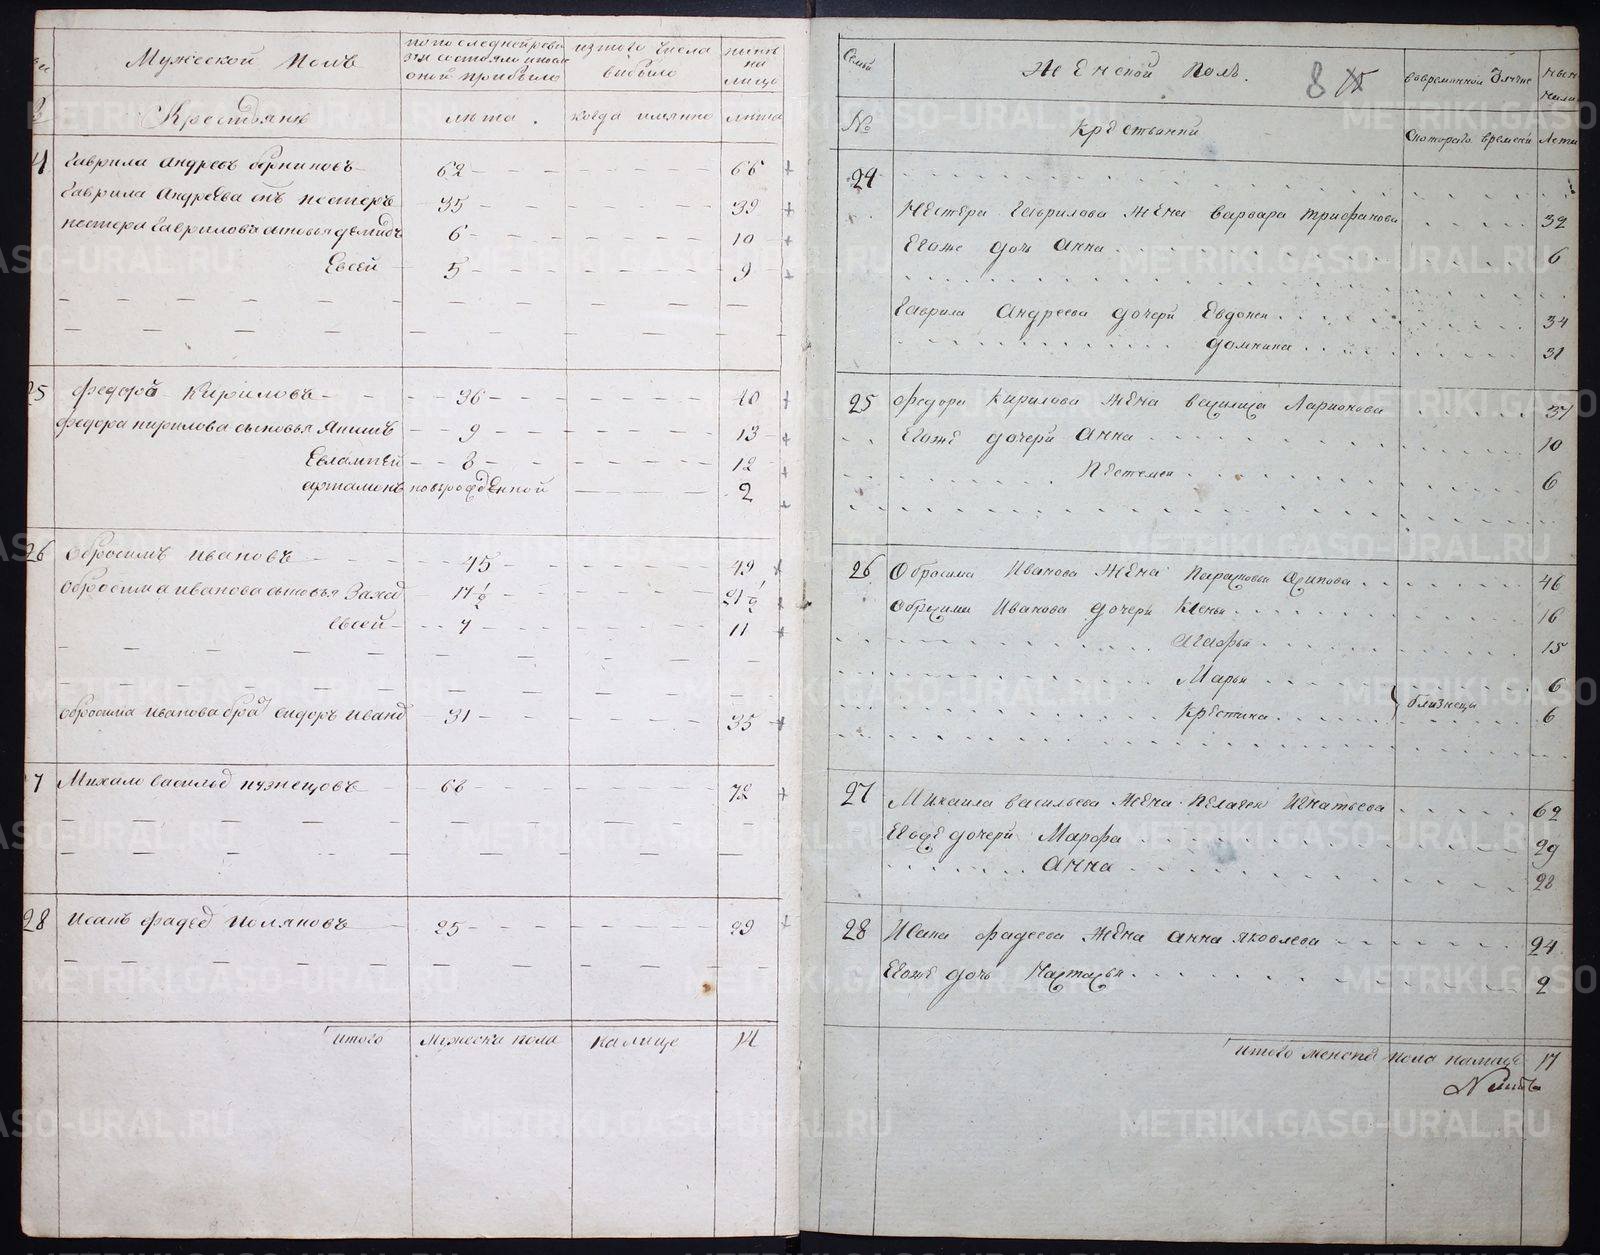 Мужеской Полъ
по последней реви
зіи состояло и после
оной прибыло
изтого числа
выбыло
ныне
на
лицо
Крестьянъ
лѣта.
когда имянно
лѣта
Гаврила Андреевъ 62 66
Гаврила Андреева сынъ нестеръ 35 39
нестера Гаврилова сыновья демидъ 6 10
Евсей 5 9
25 Федоръ Кириловъ 36 40
Федора кирилова сыновья Якимъ 9 13
Евлампей 8 12
артамонъ новорожденной 2
26 Обросимъ ивановъ 45 49
Обросима иванова сыновья 17½ 21½
Евсей 7 11
Обросима иванова братъ сидоръ 31 35
Михайло васильевъ кузнецовъ 68 72
28 Иванъ фадеевъ Поляковъ 25 29
итого Мужеска пола на лице 14
Семьи
Женской Полъ.
8
вовременной отлучке
ныне
налицо
№
Крестьянки
Скоторого времени
Лета
24
Нестера Гаврилова жена варвара трифанова 39
Егоже дочь Анна 6
Гаврила Андреева дочери Евдокея 34
домнина 31
25 Федора Кирилова жена василиса Ларионова 37
Егоже дочери Анна 10
6
26 Обросима Иванова жена Парасковья 46
Обросима Иванова дочери 16
Агафья 15
Марья 6
Крестина близнецы 6
27 Михаила васильева жена Пелагея Игнатьева 69
Егоже дочери Марфа 29
Анна 28
28 Ивана Фадеева жена Анна яковлева 24
Егоже дочь Настасья 2
итого женска пола налице 17
METRIKI.GASO-URAL.RU